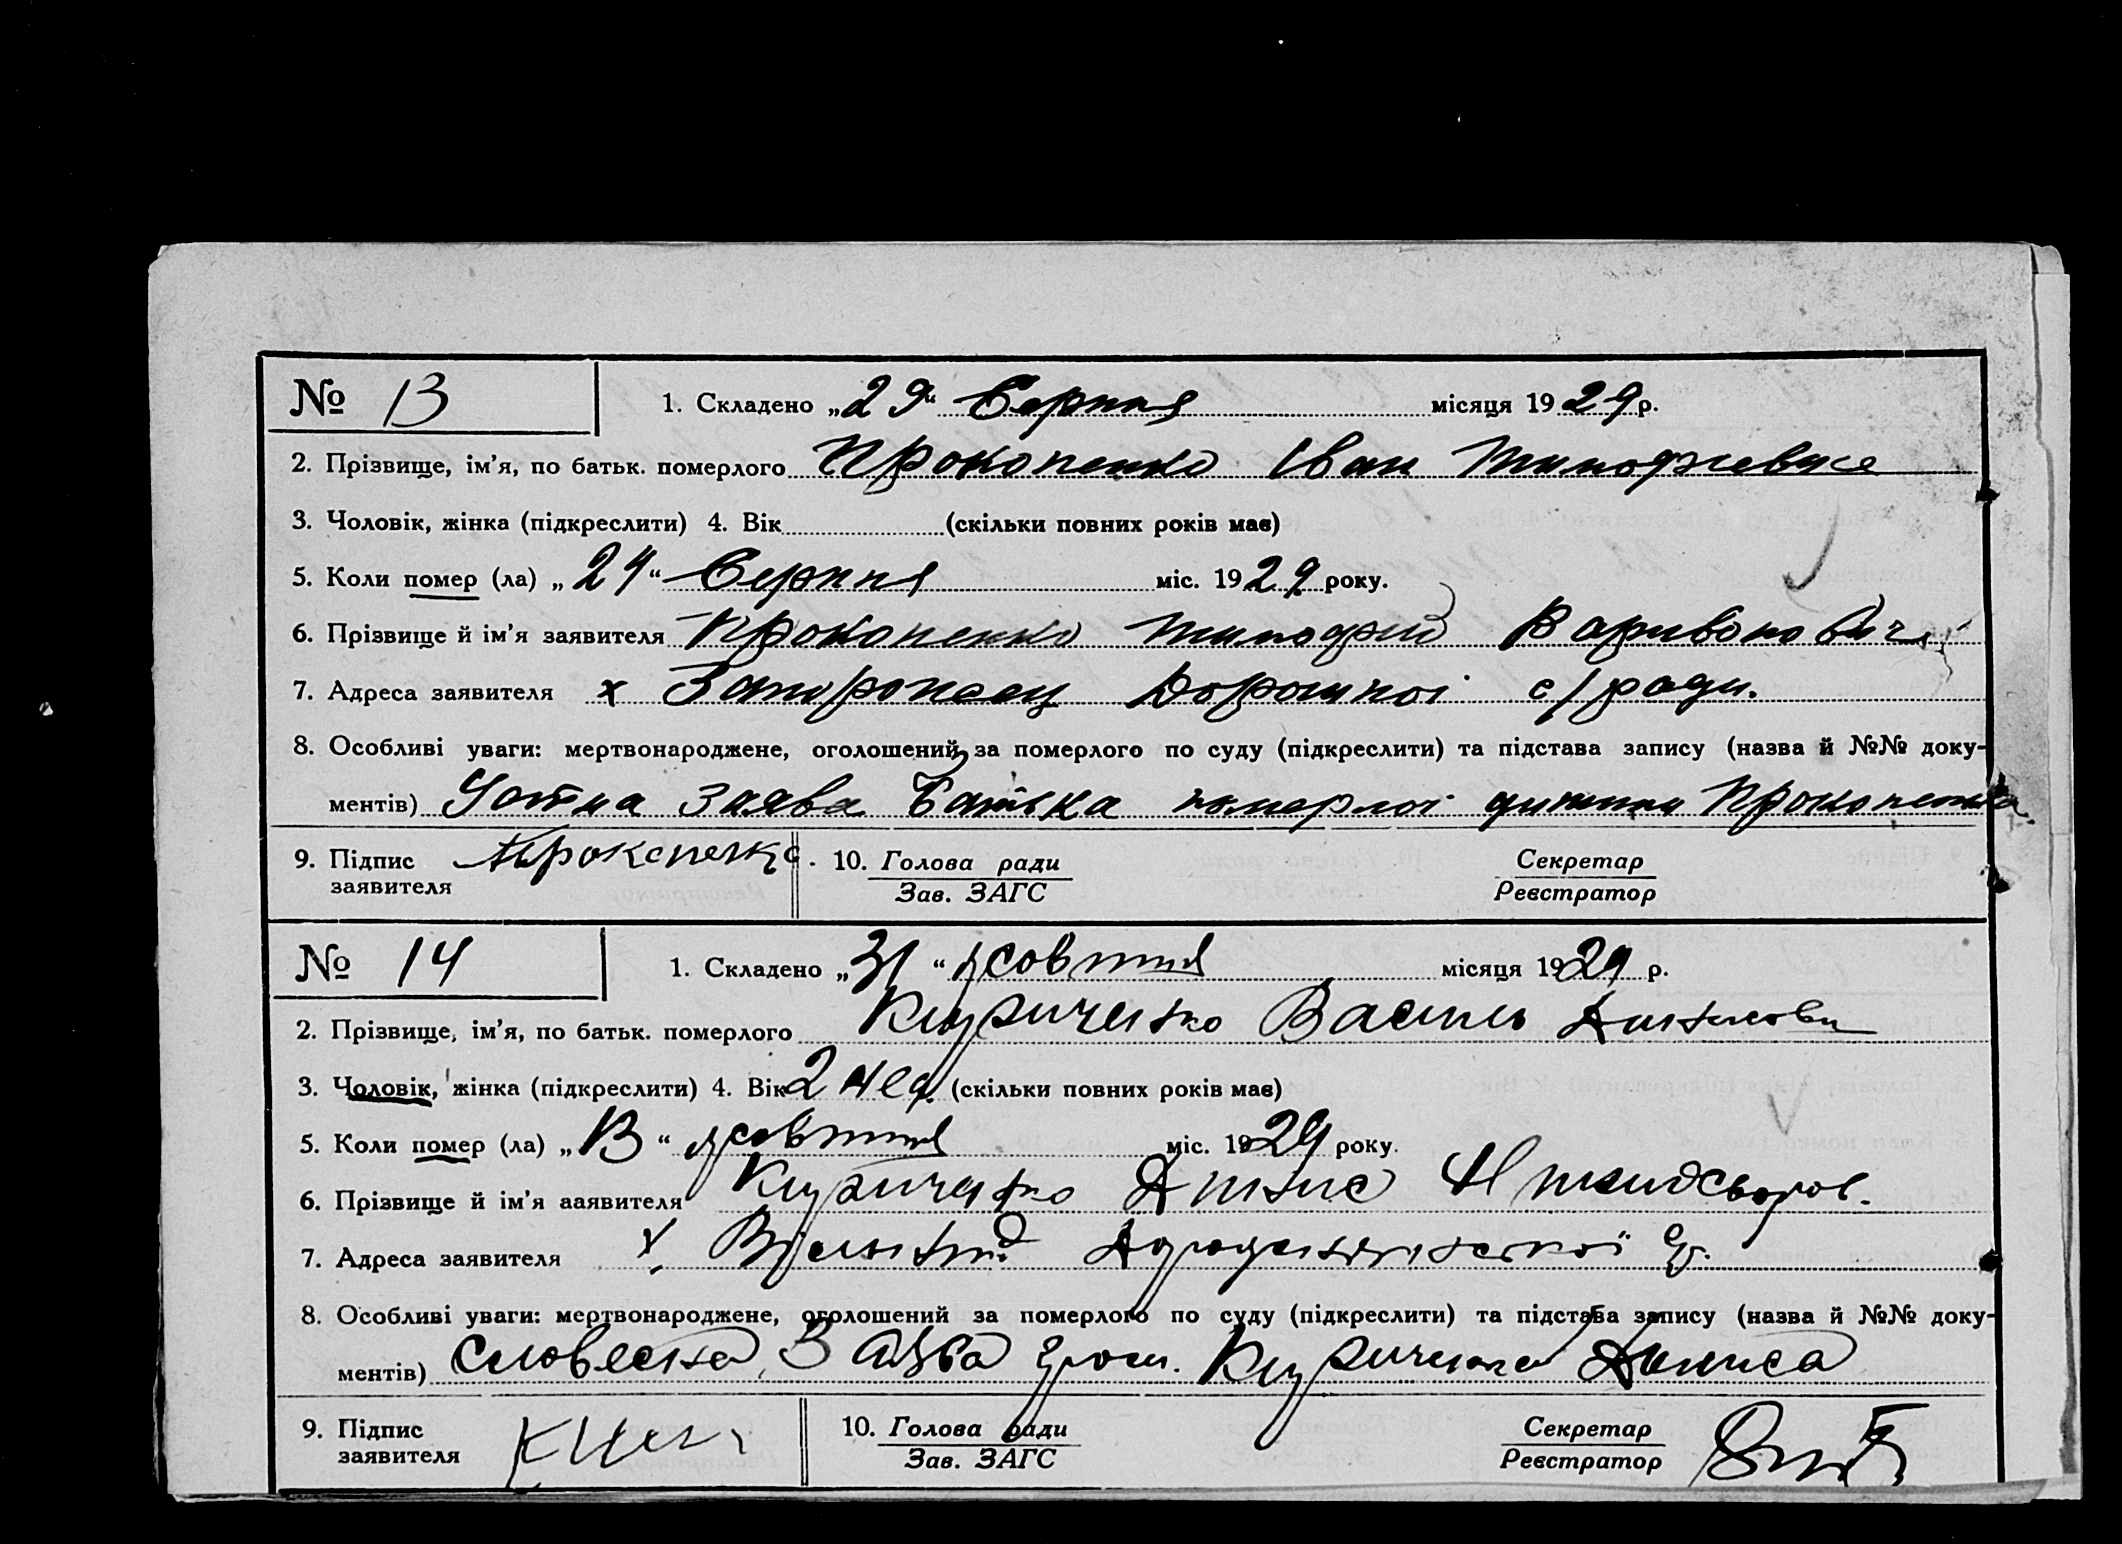 № 13 1. Складено „29“ Серпня місяця 1929 р.
2. Прізвище, ім’я, по батьк. померлого Прокопенко Іван Тимофієвич
3. Чоловік, жінка (підкреслити) 4. Вік (скільки повних років має)
5. Коли помер (ла) „24“ Серпня міс. 1929 року.
6. Прізвище й ім’я заявителя Прокопенко Тимофій Варивонович
7. Адреса заявителя х Запорожець с/ради.
8. Особливі уваги: мертвонароджене, оголошений за померлого по суду (підкреслити) та підстава запису (назва й №№ доку-
ментів) Устна Заява Батька померлої дитини Прокопенка
9. Підпис Прокопенко. 10. Голова ради Секретар
заявителя Зав. ЗАГС Реєстратор
№ 14 1. Складено „31“ жовтня місяця 1929 р.
2. Прізвище, ім’я, по батьк. померлого Кириченко Василь
3. Чоловік, жінка (підкреслити) 4. Вік 2 нед. (скільки повних років має)
5. Коли помер (ла) „13“ жовтня міс. 1929 року.
6. Прізвище й ім’я заявителя Кириченко Денис
7. Адреса заявителя х.
8. Особливі уваги: мертвонароджене, оголошений за померлого по суду (підкреслити) та підстава запису (назва й №№ доку-
ментів) Словесна Заява гром. Кириченка Дениса
9. Підпис 10. Голова ради Секретар
заявителя Зав. ЗАГС Реєстратор